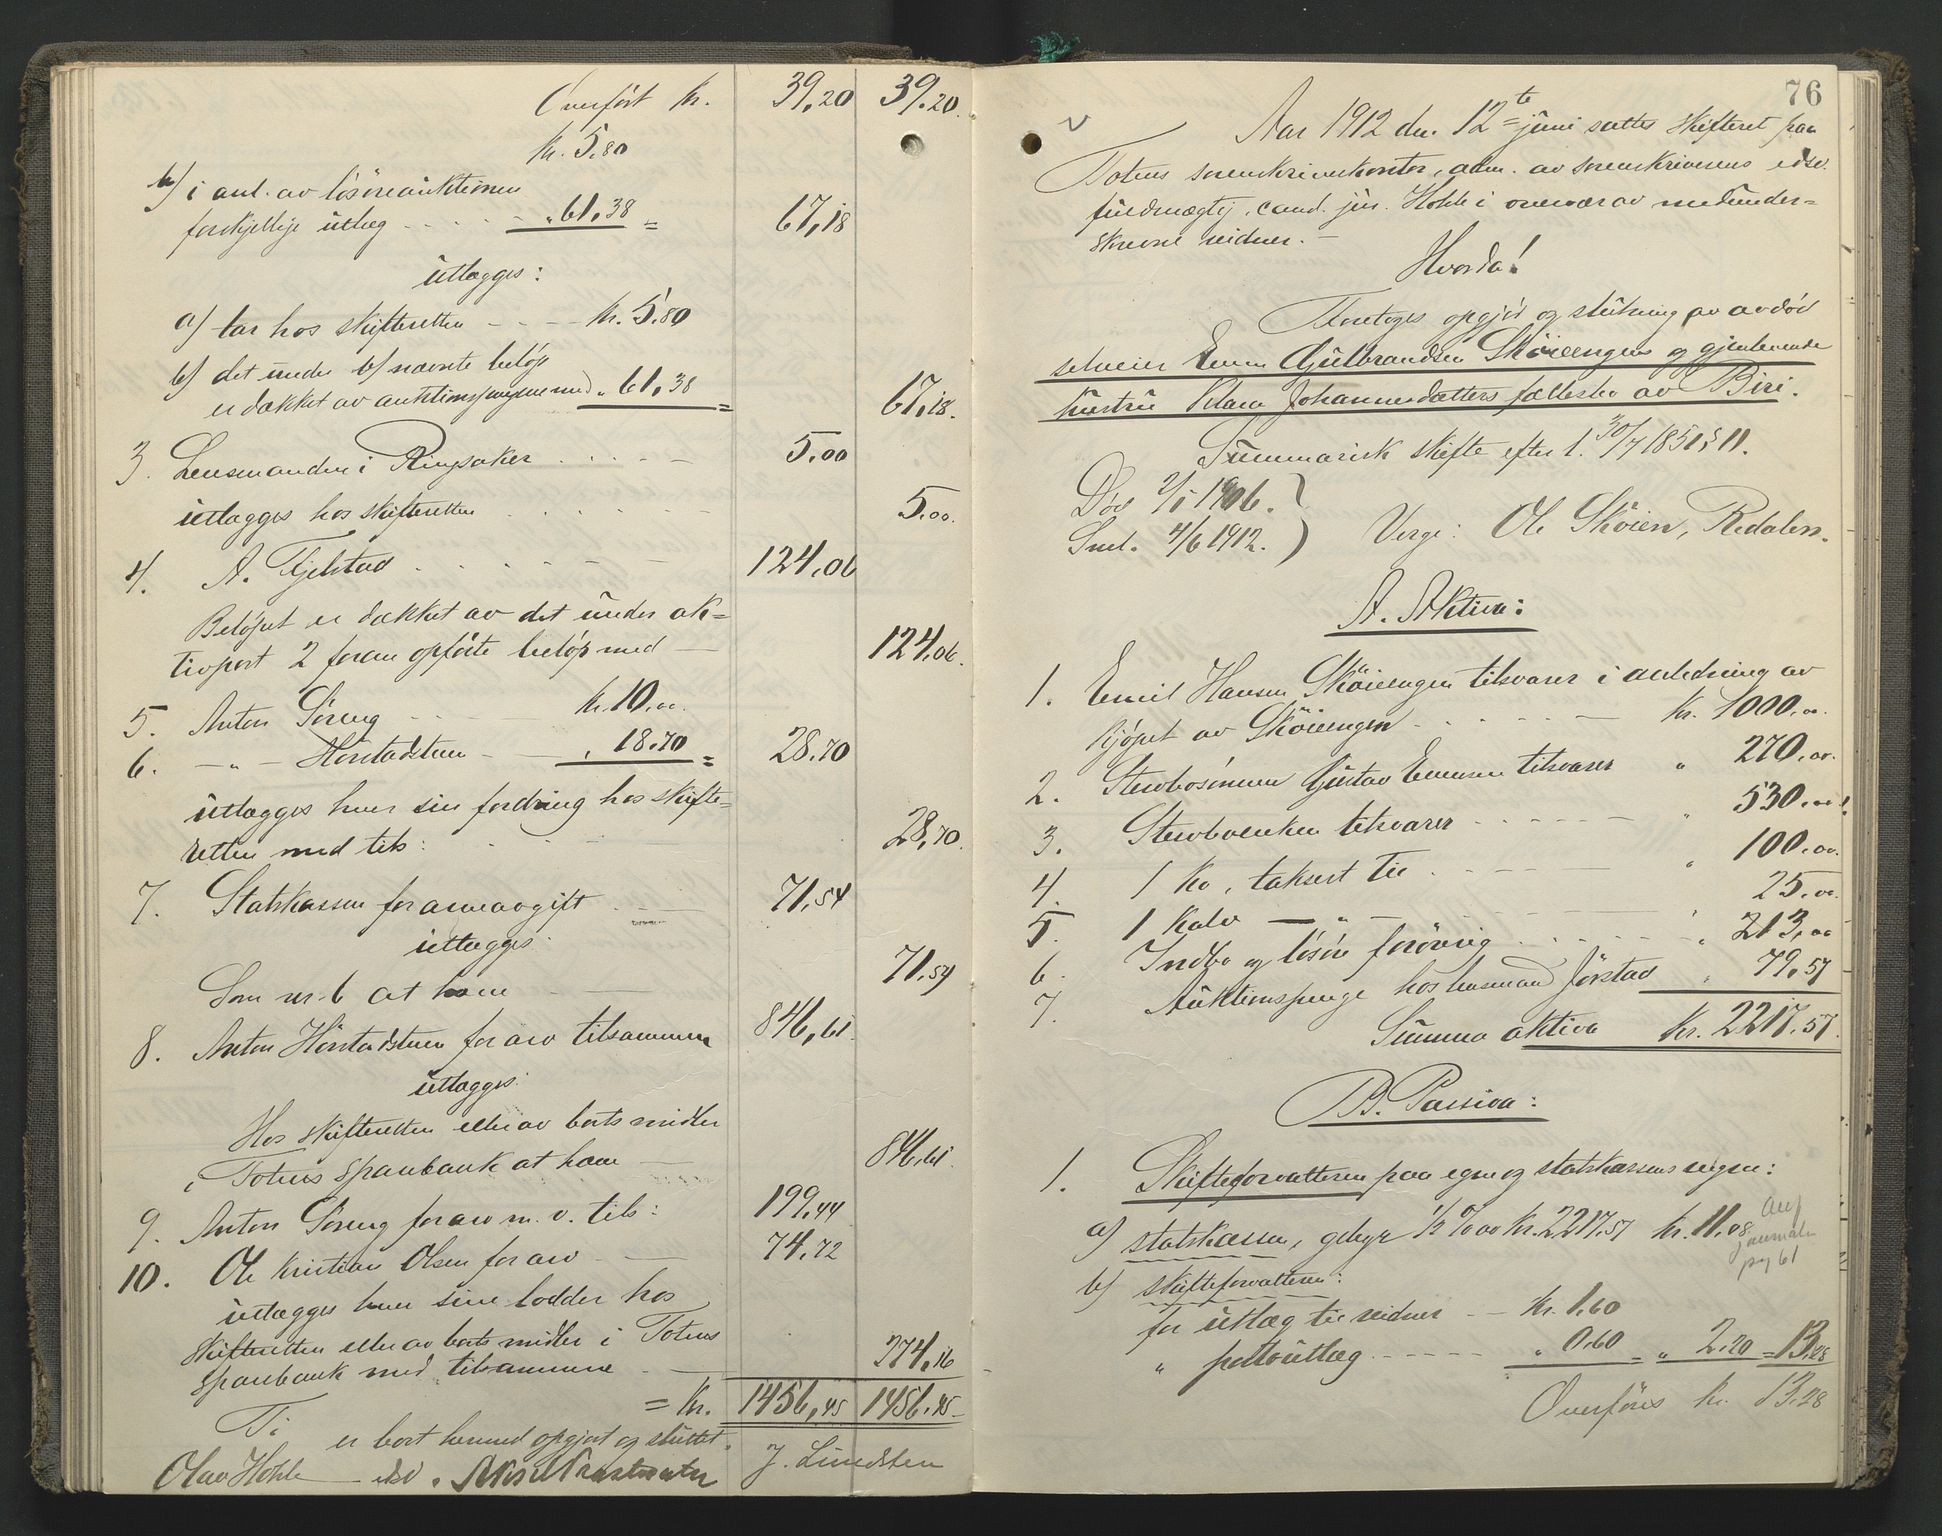 Overført kr. 39,20 39,20.
kr. 5,80
b) i anl. av løsøreauktionen
forskjellige utlæg . . . - „ 61,38 = 67,18
utlægges:
a) tar hos skifteretten - - - kr. 5,80
b) det under b) nævnte beløp
er dækket av auktionspengene med „ 61,38 = 67,18.
3. Lensmanden i Ringsaker . . . . 5,00
utlægges hos skifteretten . . . . 5,00.
4. A. Fjelstad . . . . 124,06
Beløpet er dækket av det under ak=
tivpost 2 foran opførte beløp med — 124,06.
5. Anton Søreng . . . kr. 10,00.
6. — „ — Hørstadstuen - - „ 18,70 = 28,70
utlægges hver sin fordring hos skifte=
retten med tils: . . 28,70.
7. Statskassen for arveavgift . . 71,54
utlægges:
Som nr. 6 at have — 71,54
8. Anton Hørstadstuen for arv tilsammen 846,61.
utlægges:
Hos skifteretten eller av boets midler
i Totens sparebank at have — 846,61.
9. Anton Søreng for arv m. v. tils: 199,44
10. Ole Kristian Olsen for arv — 74,72
utlægges hver sine lodder hos
skifteretten eller av boets midler i Totens
sparebank med tilsammen — 274,16
= kr. 1456,45 1456,45
Ti er boet hermed opgjort og sluttet.
Olav Hohle — edsv. J. Lundsten
76
Aar 1912 den 12te juni sattes skifteret paa
Totens sorenskriverkontor, adm. av sorenskriverens edsv.
fuldmægtig, cand. jur. Hohle i overvær av medunder=
skrevne vidner. —
Hvorda!
Foretoges opgjør og slutning av avdød
selveier Even Gulbrandsen Skøiengen og gjenlevende
hustru Klara Johannesdatters fællesbo av Biri.
Summarisk skifte efter l. 30/7 1851 § 11.
Død 2/5 1906.
Smt. 4/6 1912. Verge: Ole Skøien, Redalen.
A. Aktiva:
1. Emil Hansen Skøiengen tilsvarer i anledning av
kjøpet av Skøiengen . . . . kr. 1000,00.
2. Stervbosønnen Gustav Evensen tilsvarer „ 270,00.
3. Stervboenken tilsvarer - - - - „ 530,00!
4. 1 ko, taksert til . - - - - „ 100,00.
5. 1 kalv — „ — - - - - „ 25,00.
6. Indbo og løsøre forøvrig . . . „ 213,00
7. Auktionspenge hos lensmand Jørstad „ 79,57
Summa aktiva kr. 2217,57.
B. Passiva:
1. Skifteforvalteren paa egne og statskassens vegne:
a) statskassen, gebyr ½ % av kr. 2217,57 kr. 11,08
journalen
pag 61
b) skifteforvalteren:
for utlæg til vidner - - kr. 1,60
„ portoutlæg - - - - „ 0,60 = „ 2,20 = 13,28
Overføres kr. 13,28